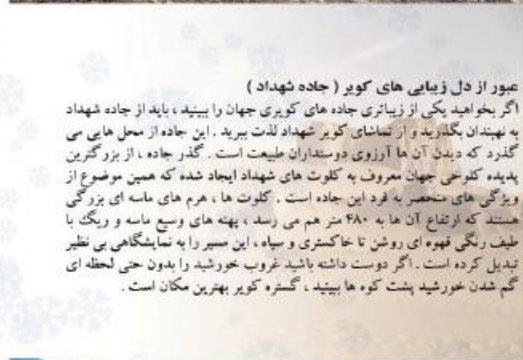 عبور از دل زیبایی های کویر ( جاده شهداد )
اگر بخواهید یکی از زیباتری جاده های کویری جهان را ببینید ، باید از جاده شهداد
به نهبندان بگذرید و از تماشای کویر شهداد لذت ببرید . این جاده از محل هایی می
گذرد که دیدن آن ها آرزوی دوستداران طبیعت است . گذر جاده ، از بزرگترین
پدیده کلوخی جهان معروف به کلوت های شهداد ایجاد شده که همین موضوع از
ویژگی های منحصر به فرد این جاده است . کلوت ها ، هرم های ماسه ای بزرگی
هستند که ارتفاع آن ها به ۴۸۰ متر هم می رسد ، پهنه های وسیع ماسه و ریگ با
طیف رنگی قهوه ای روشن تا خاکستری و سیاه ، این مسیر را به نمایشگاهی بی نظیر
تبدیل کرده است . اگر دوست داشته باشید غروب خورشید را بدون حتی لحظه ای
گم شدن خورشید پشت کوه ها ببینید ، گستره کویر بهترین مکان است .